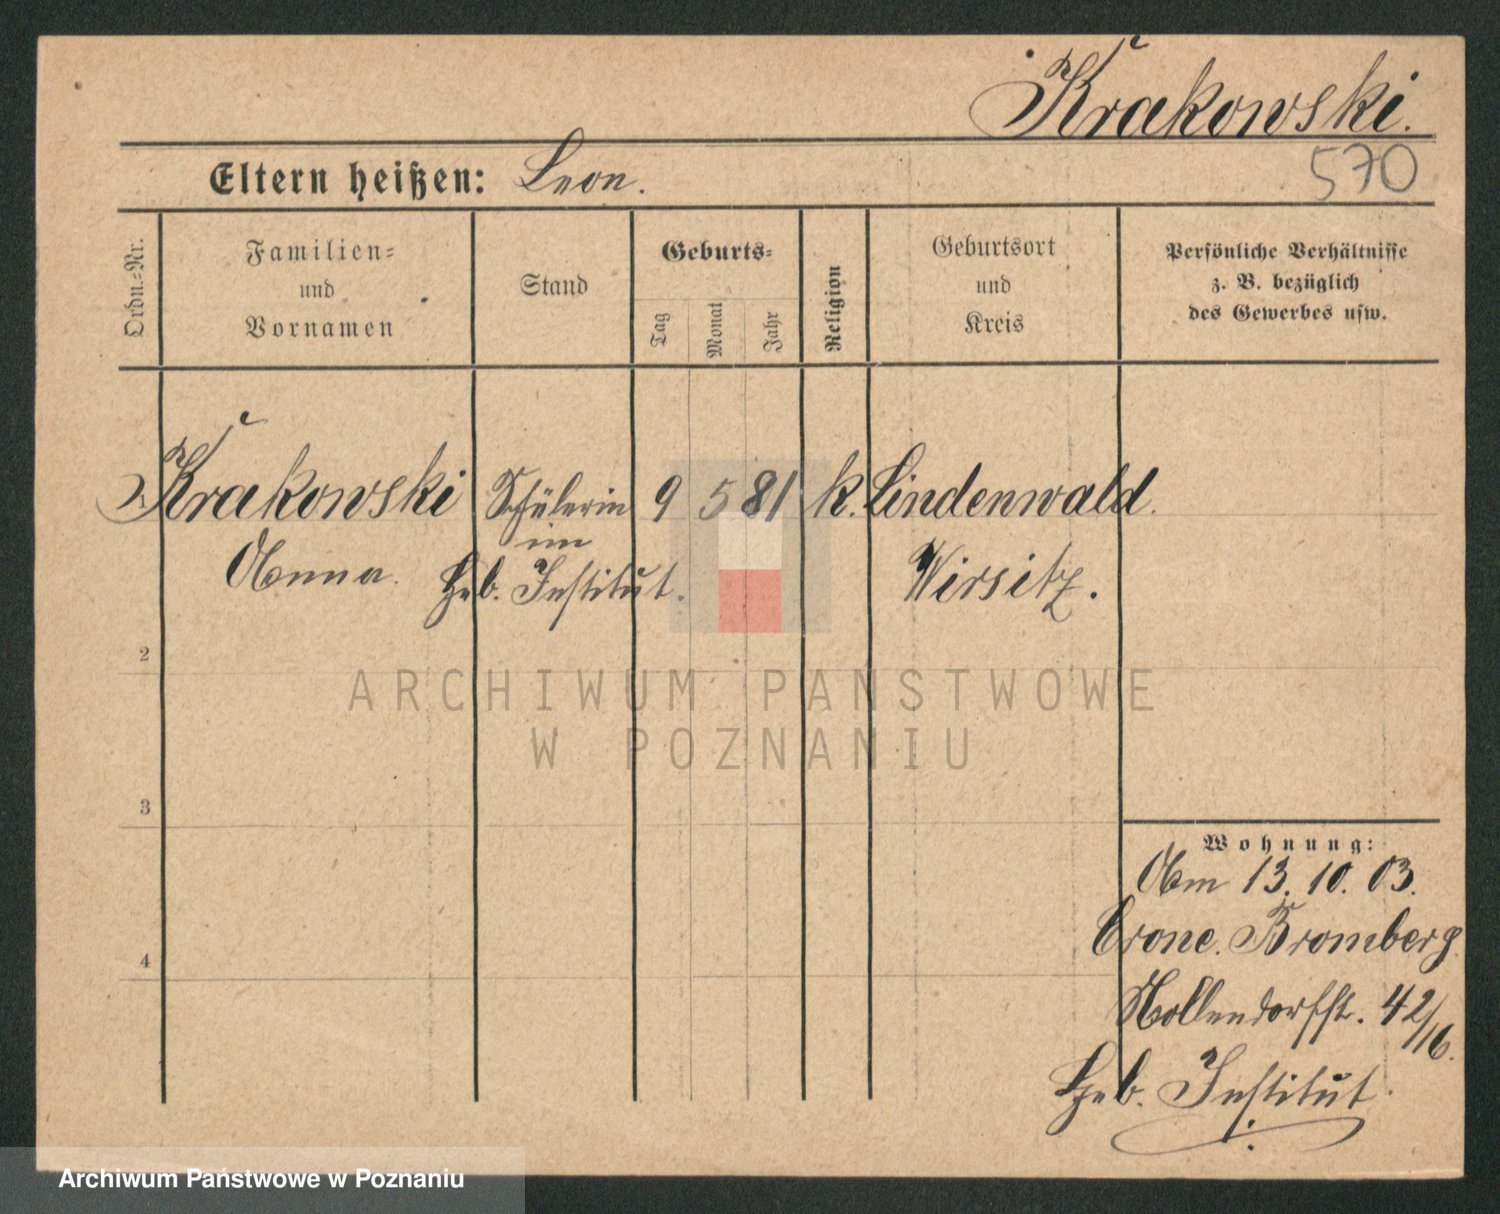 Krakowski.
570
Eltern heißen: Leon.
Ordn.-Nr.
Familien-
und
Vornamen
Stand
Geburts-
Tag
Monat
Jahr
Religion
Geburtsort
und
Kreis
Persönliche Verhältnisse
z. B. bezüglich
des Gewerbes usw.
Krakowski Schülerin 9 5 81 k. Lindenwald.
im
Anna. Heb. Institut. Wirsitz.
2
3
4
Wohnung:
Am 13. 10. 03.
Crone. Bromberg
Nollendorfstr. 42/16.
Heb. Institut.
ARCHIWUM PAŃSTWOWE
W POZNANIU
Archiwum Państwowe w Poznaniu